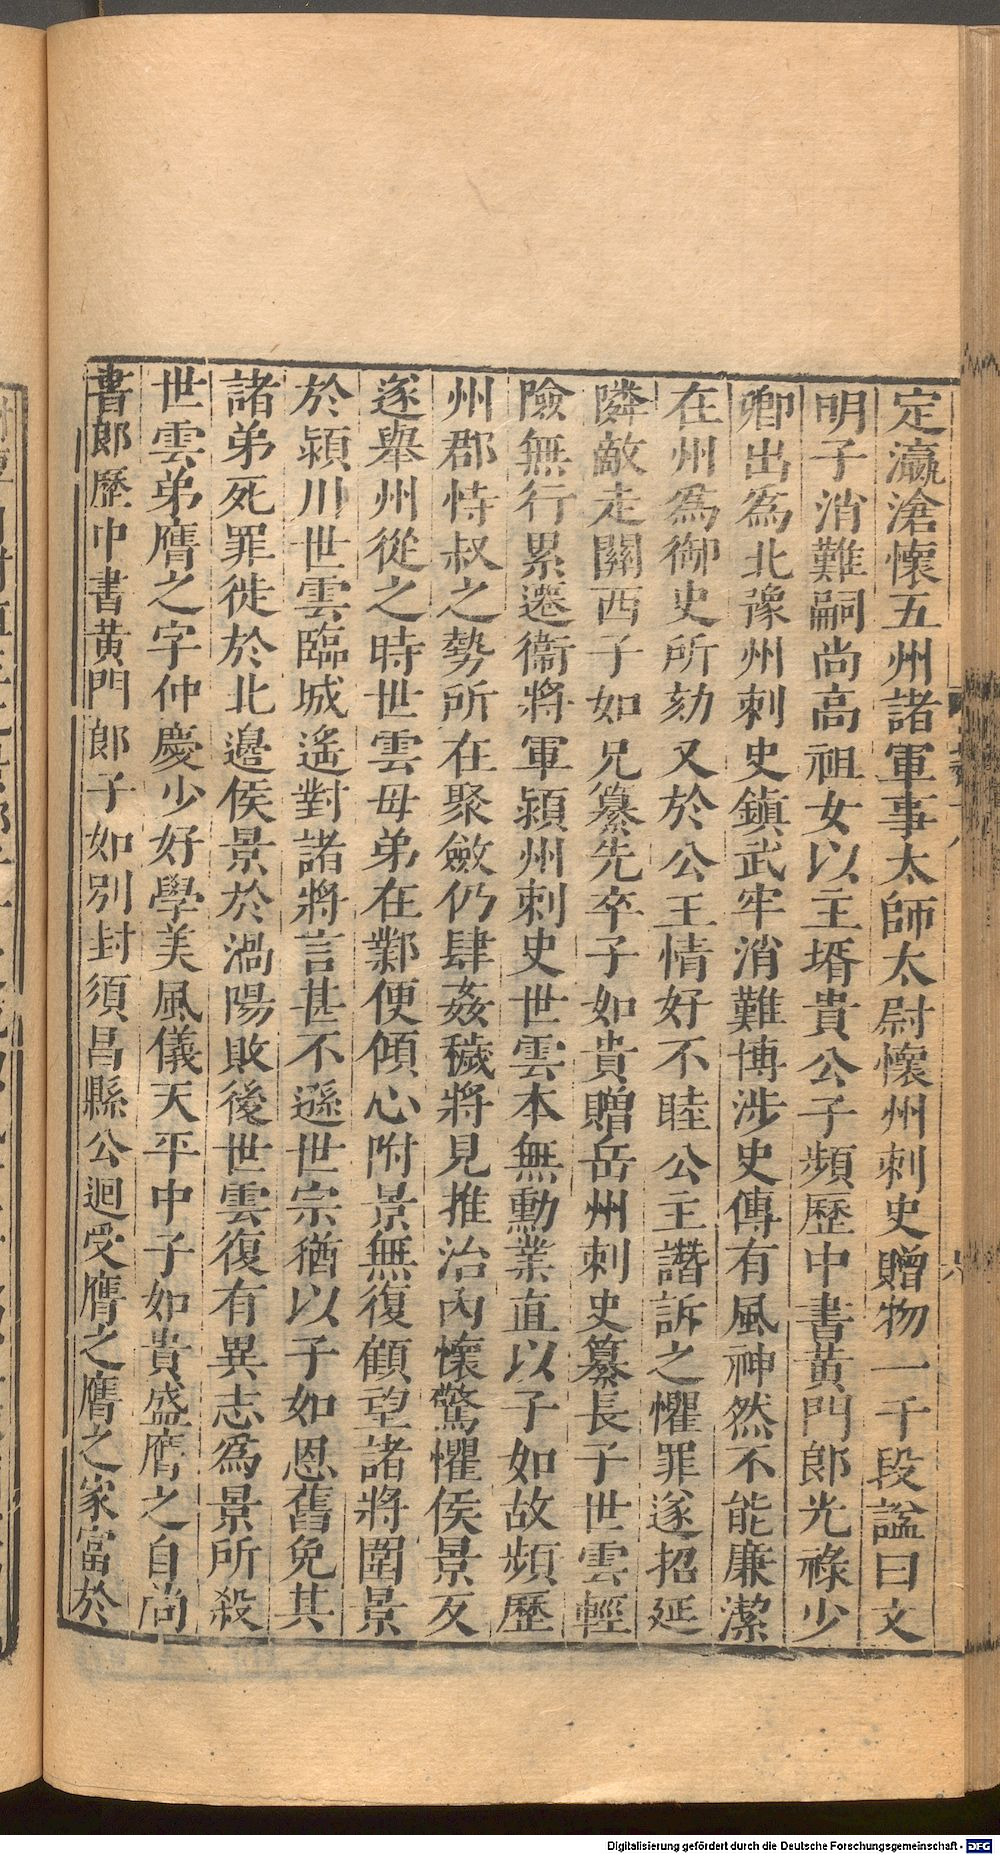 定瀛滄懷五州諸軍事太師太尉懷州刺史贈物一千段諡曰文
明子消難嗣尚高祖女以主壻貴公子頻歷中書黄門郎光祿少
卿出爲北豫州刺史鎮武牢消難博涉史傳有風神然不能廉潔
在州爲御史所劾又於公主情好不睦公主譖訴之懼罪遂招延
隣敵走關西子如兄纂先卒子如貴贈岳州刺史纂長子世雲輕
險無行累遷衞將軍潁州刺史世雲本無勳業直以子如故頻歷
州郡恃叔之勢所在聚斂仍肆姦穢將見推治內懷驚懼侯景反
遂舉州從之時世雲母弟在鄴便傾心附景無復顧望諸將圍景
於潁川世雲臨城遙對諸將言甚不遜世宗猶以子如恩舊免其
諸弟死罪徙於北邊侯景於渦陽敗後世雲復有異志爲景所殺
世雲弟膺之字仲慶少好學美風儀天平中子如貴盛膺之自尚
書郎歷中書黄門郎子如別封須昌縣公迴受膺之膺之家富於
Digitalisierung gefördert durch die Deutsche Forschungsgemeinschaft - DFG